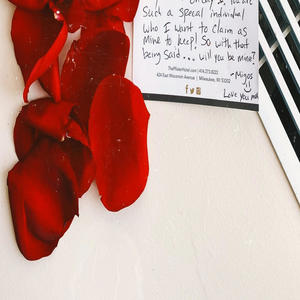 you are
Such a special individual
who I want to claim as
mine to keep! So with that
being said... will you be mine?
-Migos
Love you
ThePfisterHotel.com | 414.273.8222
424 East Wisconsin Avenue | Milwaukee, WI 53202